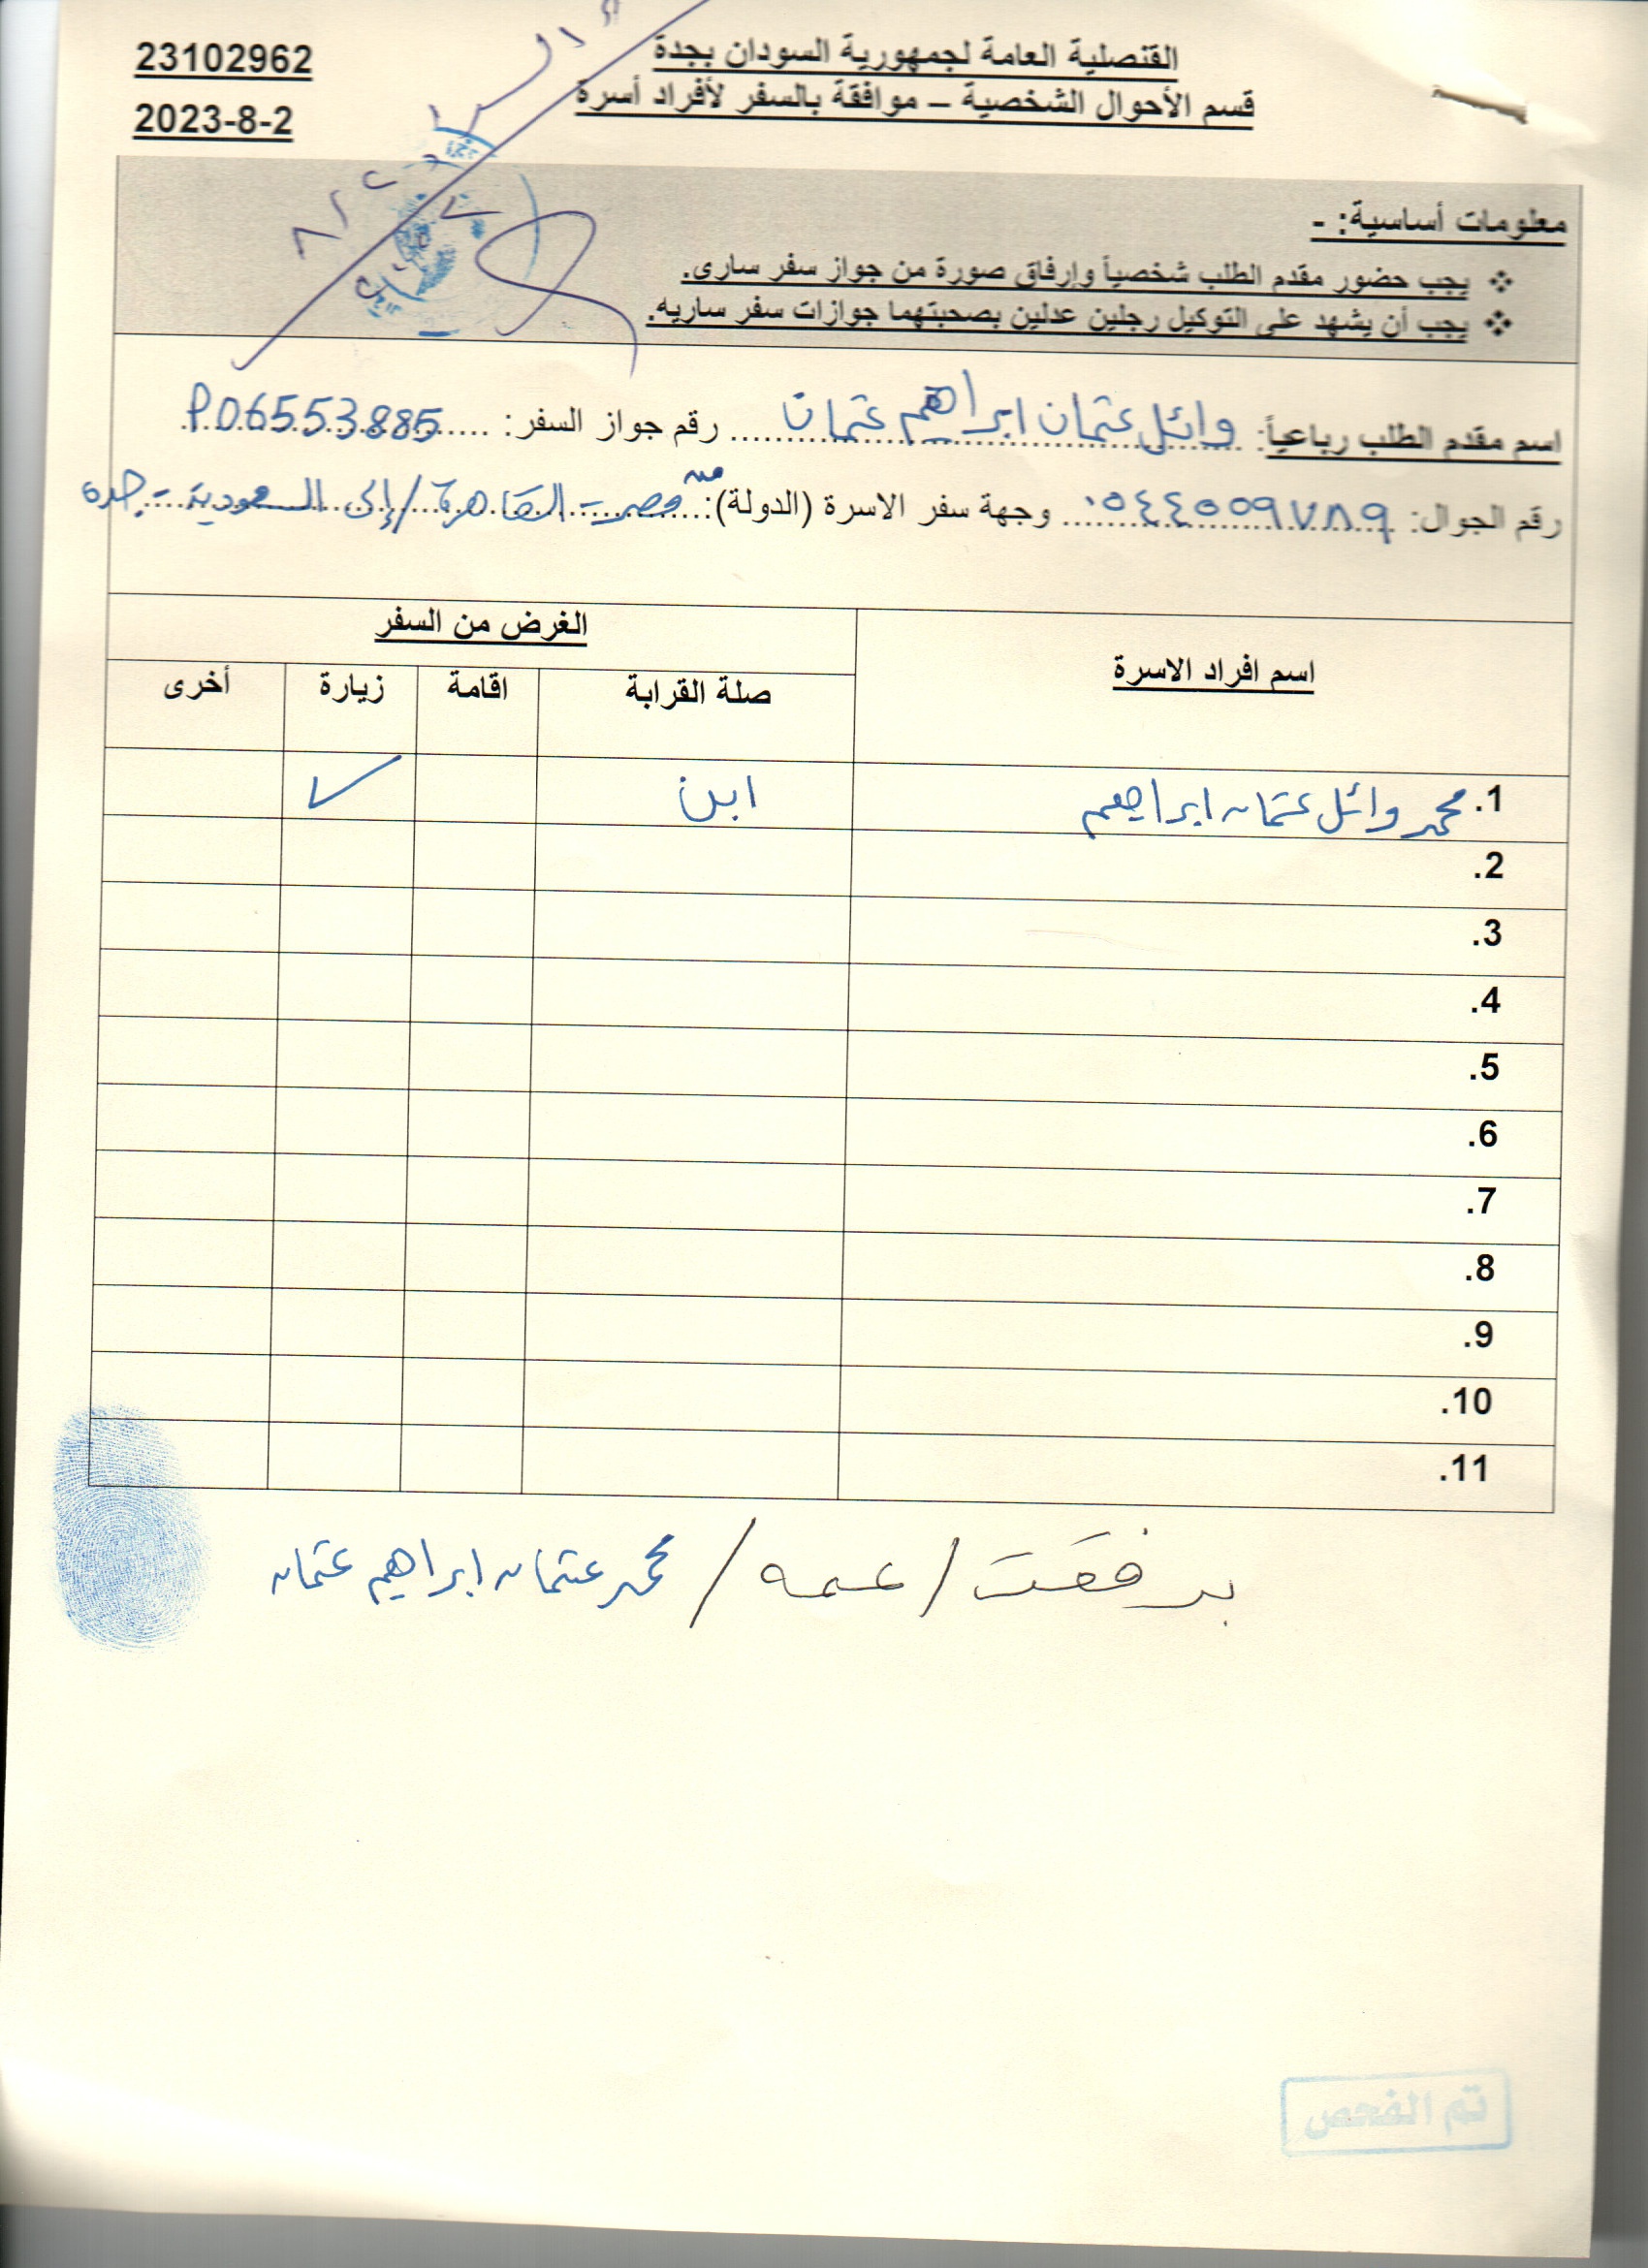 القنصلية العامة لجمهورية السودان بجدة
23102962
قسم الأحوال الشخصية – موافقة بالسفر لأفراد أسرة
2023-8-2
معلومات أساسية: -
❖ يجب حضور مقدم الطلب شخصياً وإرفاق صورة من جواز سفر سارى.
❖ يجب أن يشهد على التوكيل رجلين عدلين بصحبتهما جوازات سفر ساريه.
اسم مقدم الطلب رباعياً: وائل عثمان ابراهيم عثمان رقم جواز السفر: P06553885
رقم الجوال: ٠٥٤٤٥٥٩٧٨٩ وجهة سفر الاسرة (الدولة): من مصر - القاهرة / إلى السعودية - جدة
اسم افراد الاسرة الغرض من السفر
صلة القرابة اقامة زيارة أخرى
1. محمد وائل عثمان ابراهيم ابن ✓
2.
3.
4.
5.
6.
7.
8.
9.
10.
11.
برفقت / عمه / محمد عثمان ابراهيم عثمان
تم الفحص